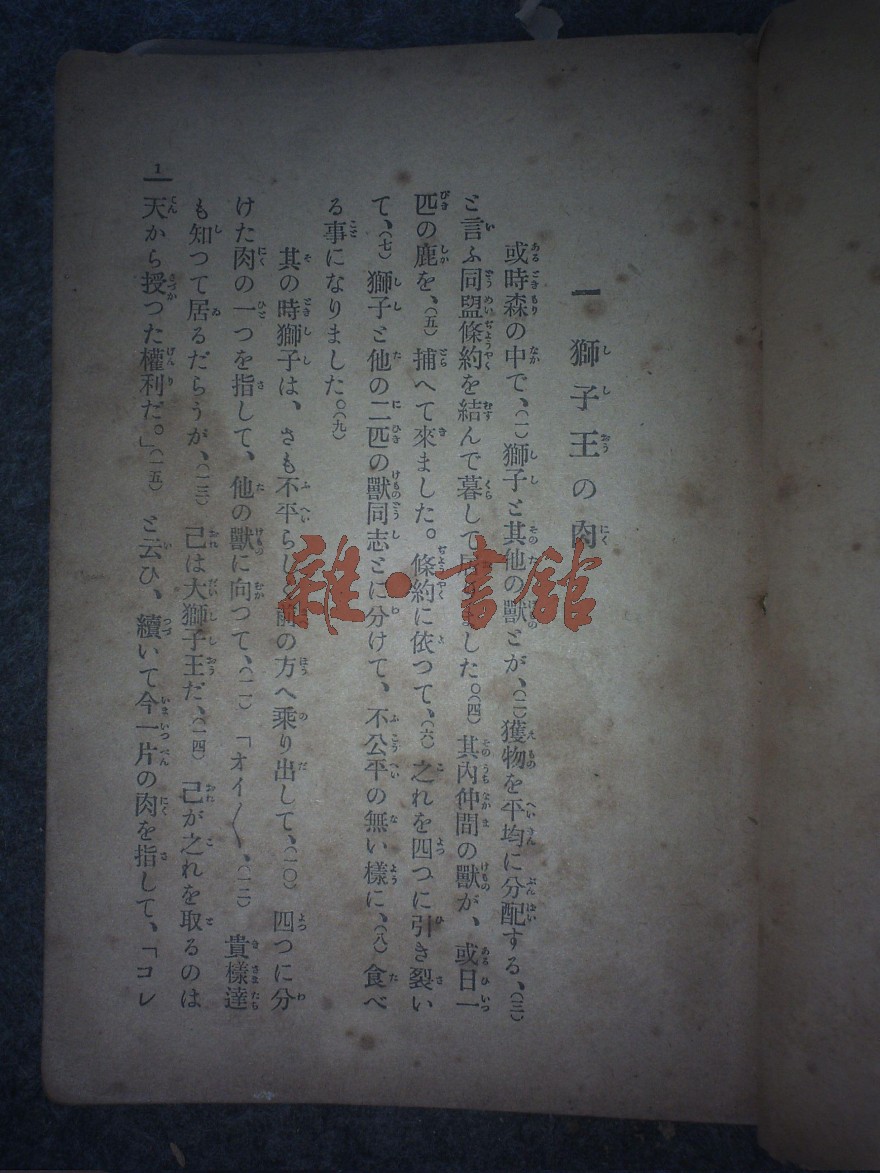 一 獅子王の肉
或時森の中で、(一)獅子と其他の獸とが、(二)獲物を平均に分配する、(三)
と言ふ同盟條約を結んで暮してました。(四)其內仲間の獸が、或日一
匹の鹿を、(五)捕へて來ました。條約に依つて、(六)之れを四つに引き裂い
て、(七)獅子と他の二匹の獸同志とに分けて、不公平の無い樣に、(八)食べ
る事になりました。(九)
其の時獅子は、さも不平らし前の方へ乘り出して、(一〇)四つに分
けた肉の一つを指して、他の獸に向つて、(一一)「オイ〱、(一二)貴樣達
も知つて居るだらうが、(一三)己は大獅子王だ、(一四)己が之れを取るのは
天から授つた權利だ。」(一五)と云ひ、續いて今一片の肉を指して、「コレ
1
雜·書館